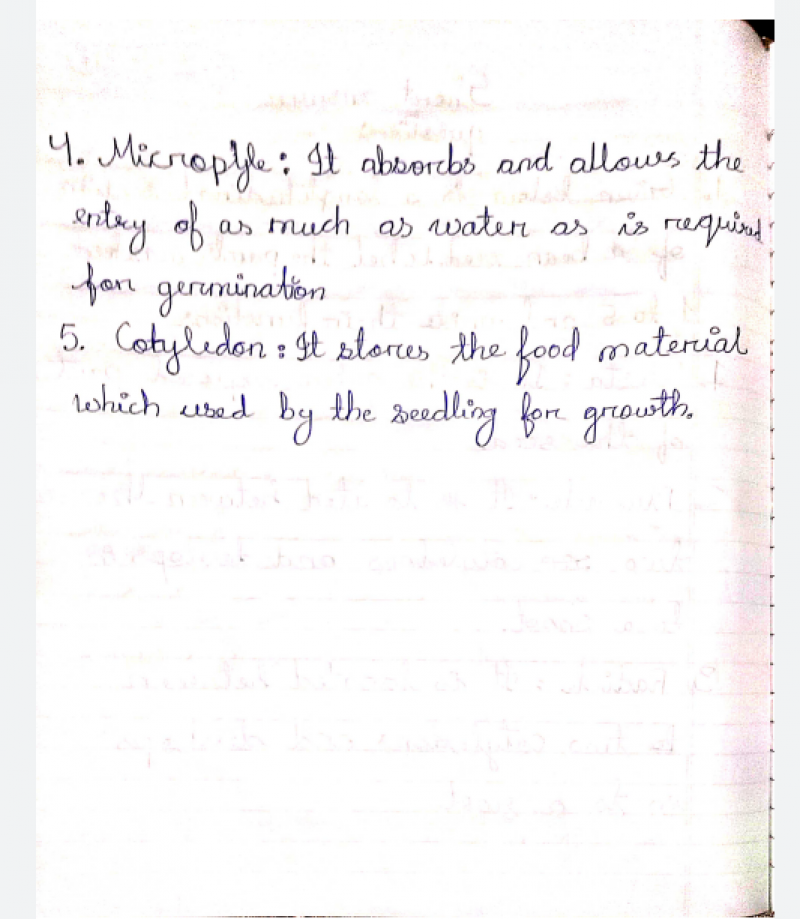 4. Micropyle: It absorbs and allows the
entry of as much as water as is required
for germination
5. Cotyledon: It stores the food material
which used by the seedling for growth.